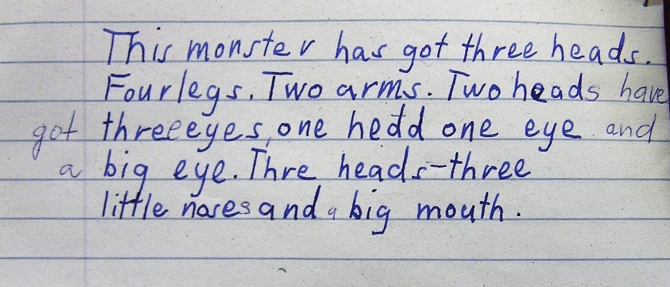 This monster has got three heads.
Four legs. Two arms. Two heads have
got three eyes, one hedd one eye and
a big eye. Thre heads-three
little noses and a big mouth.